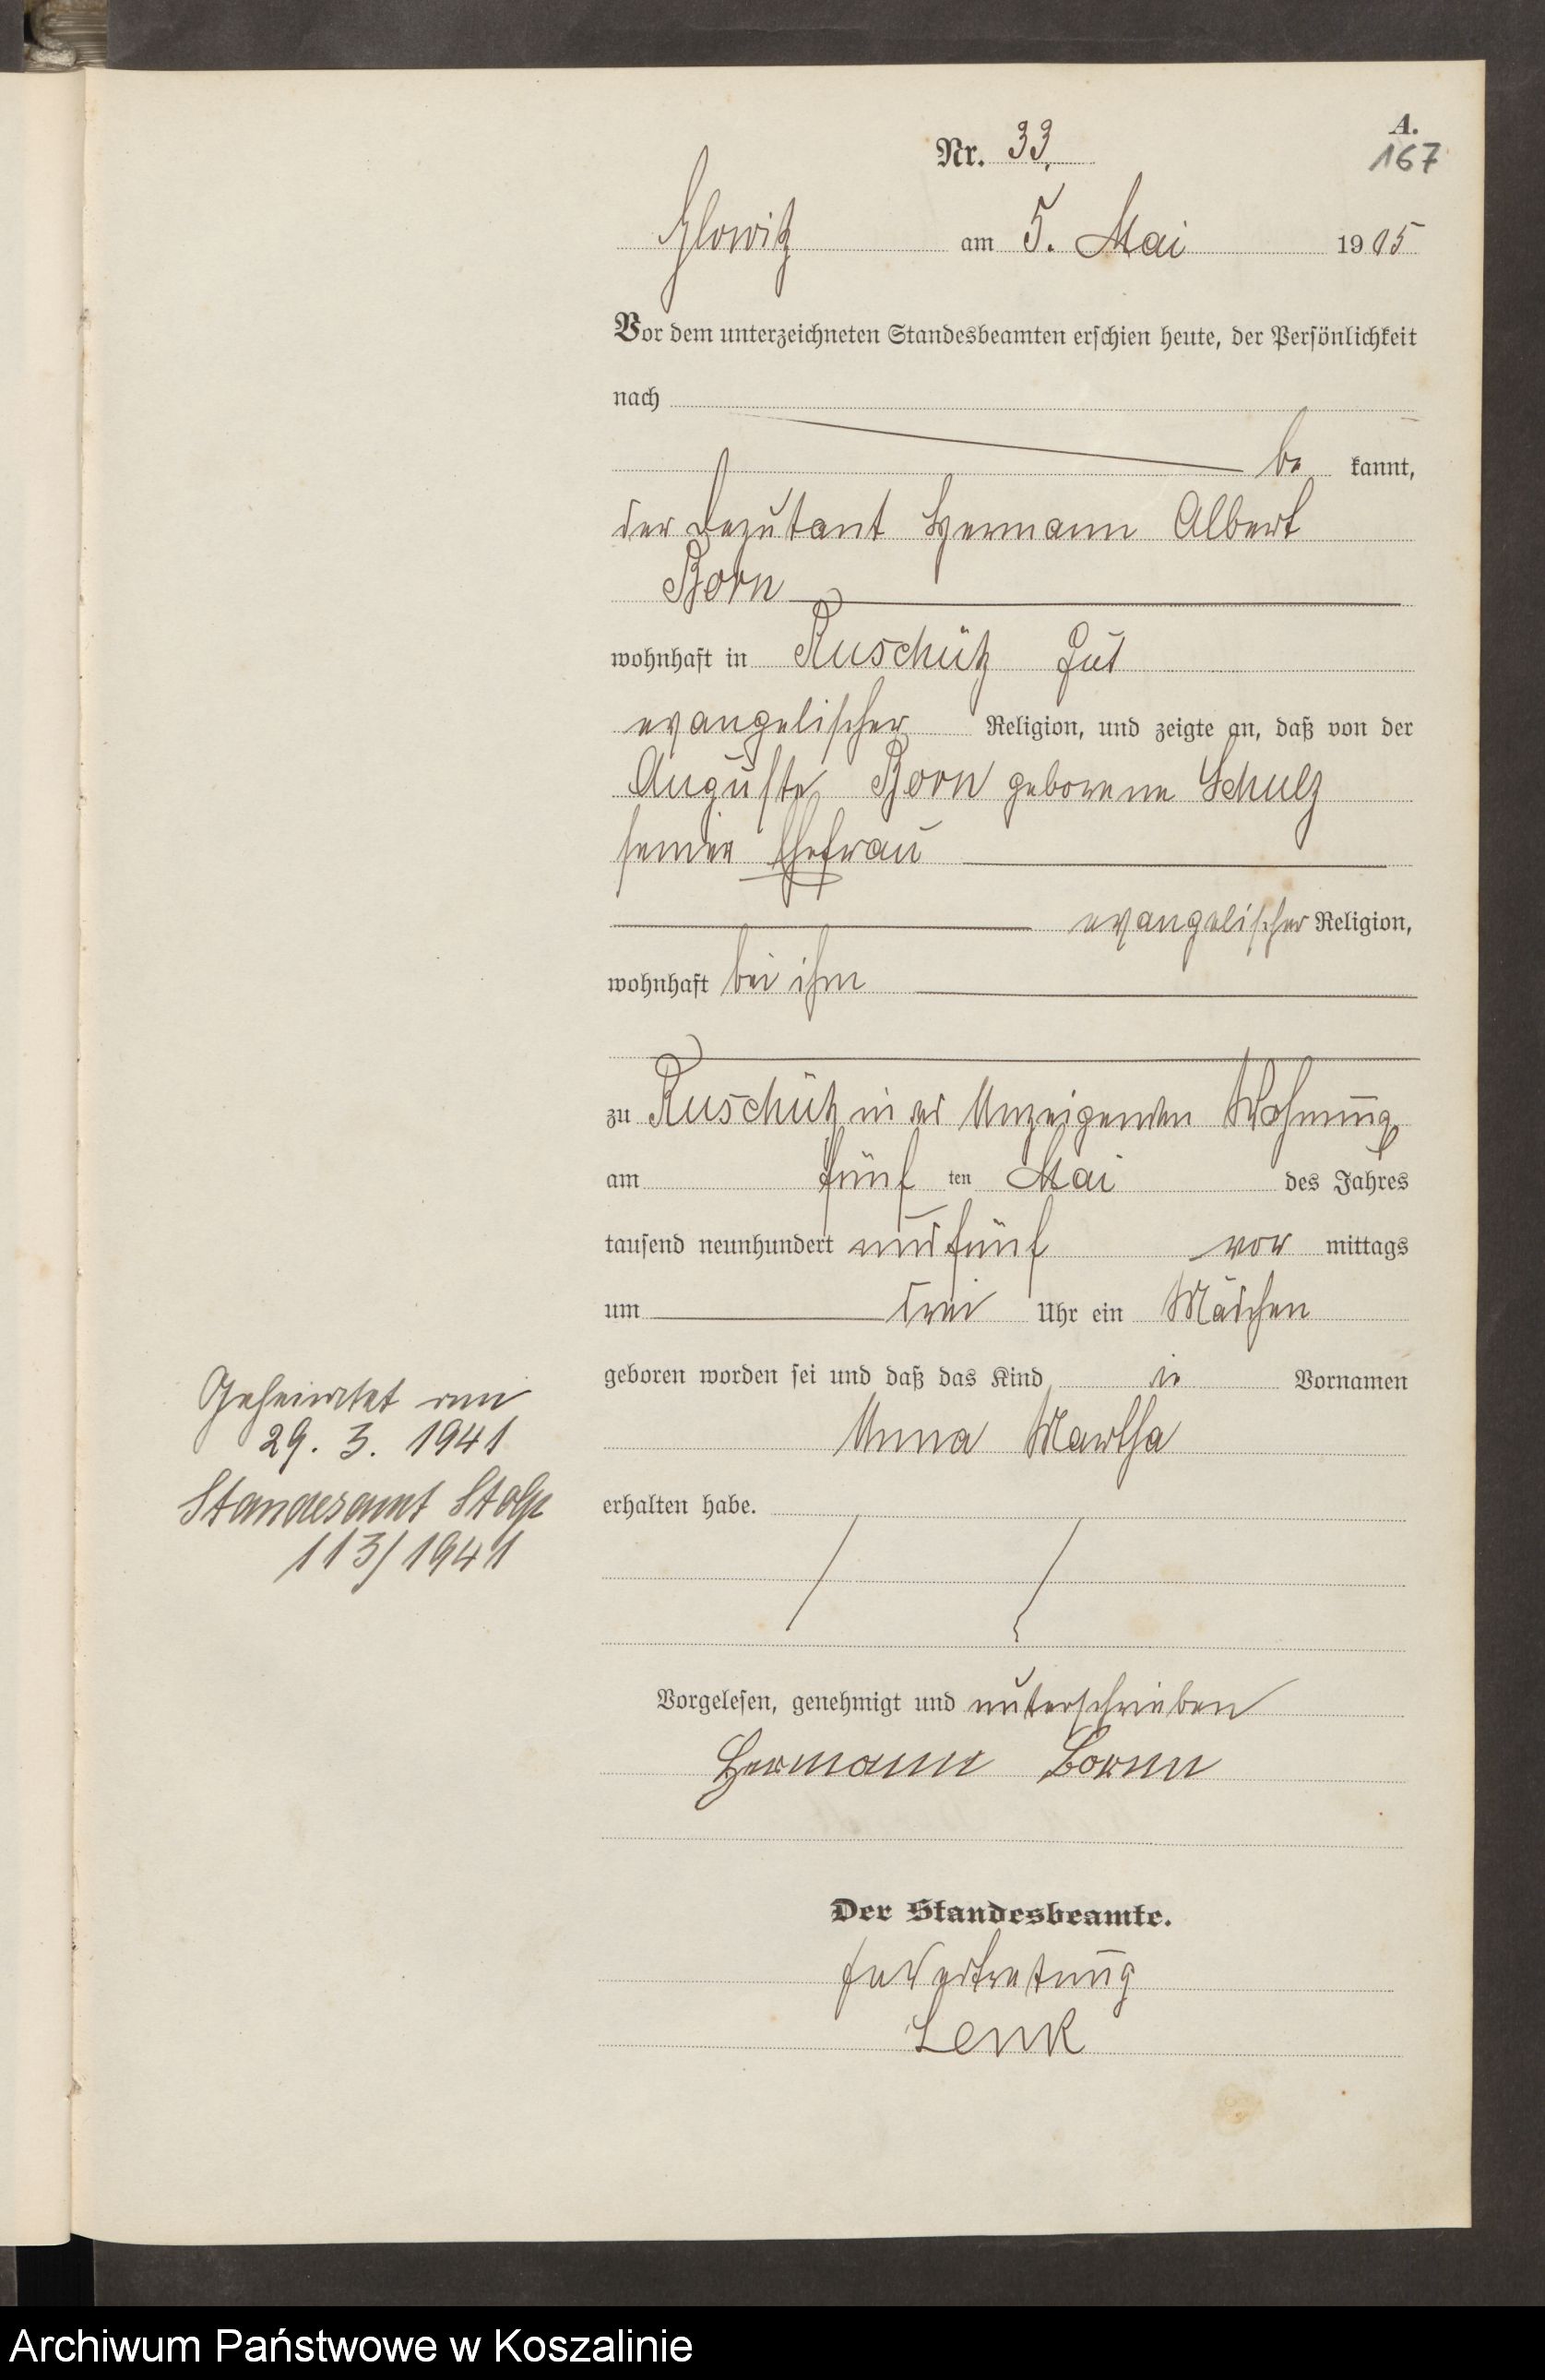 A.
Nr. 33.
167
Glowitz am 5. Mai 1905
Vor dem unterzeichneten Standesbeamten erschien heute, der Persönlichkeit
nach
be kannt,
der Deputant Hermann Albert
Born
wohnhaft in Ruschütz Gut
evangelischer Religion, und zeigte an, daß von der
Auguste Born geborene Schulz
seiner Ehefrau
evangelischer Religion,
wohnhaft bei ihm
zu Ruschütz in des Anzeigenden Wohnung
am fünf ten Mai des Jahres
tausend neunhundert und fünf vor mittags
um drei Uhr ein Mädchen
geboren worden sei und daß das Kind die Vornamen
Anna Martha
erhalten habe.
Geheiratet am
29. 3. 1941
Standesamt Stolp
113/1941
Vorgelesen, genehmigt und unterschrieben
Hermann Born
Der Standesbeamte.
In Vertretung
Lenk
Archiwum Państwowe w Koszalinie